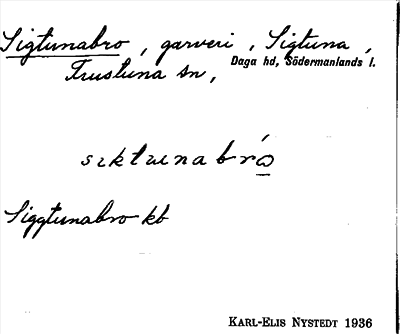 Sigtunabro, garveri, Sigtuna,
Trustuna sn, Daga hd, Södermanlands l.
sıktu̇nabró
Siggtunabro kb
KARL-ELIS NYSTEDT 1936